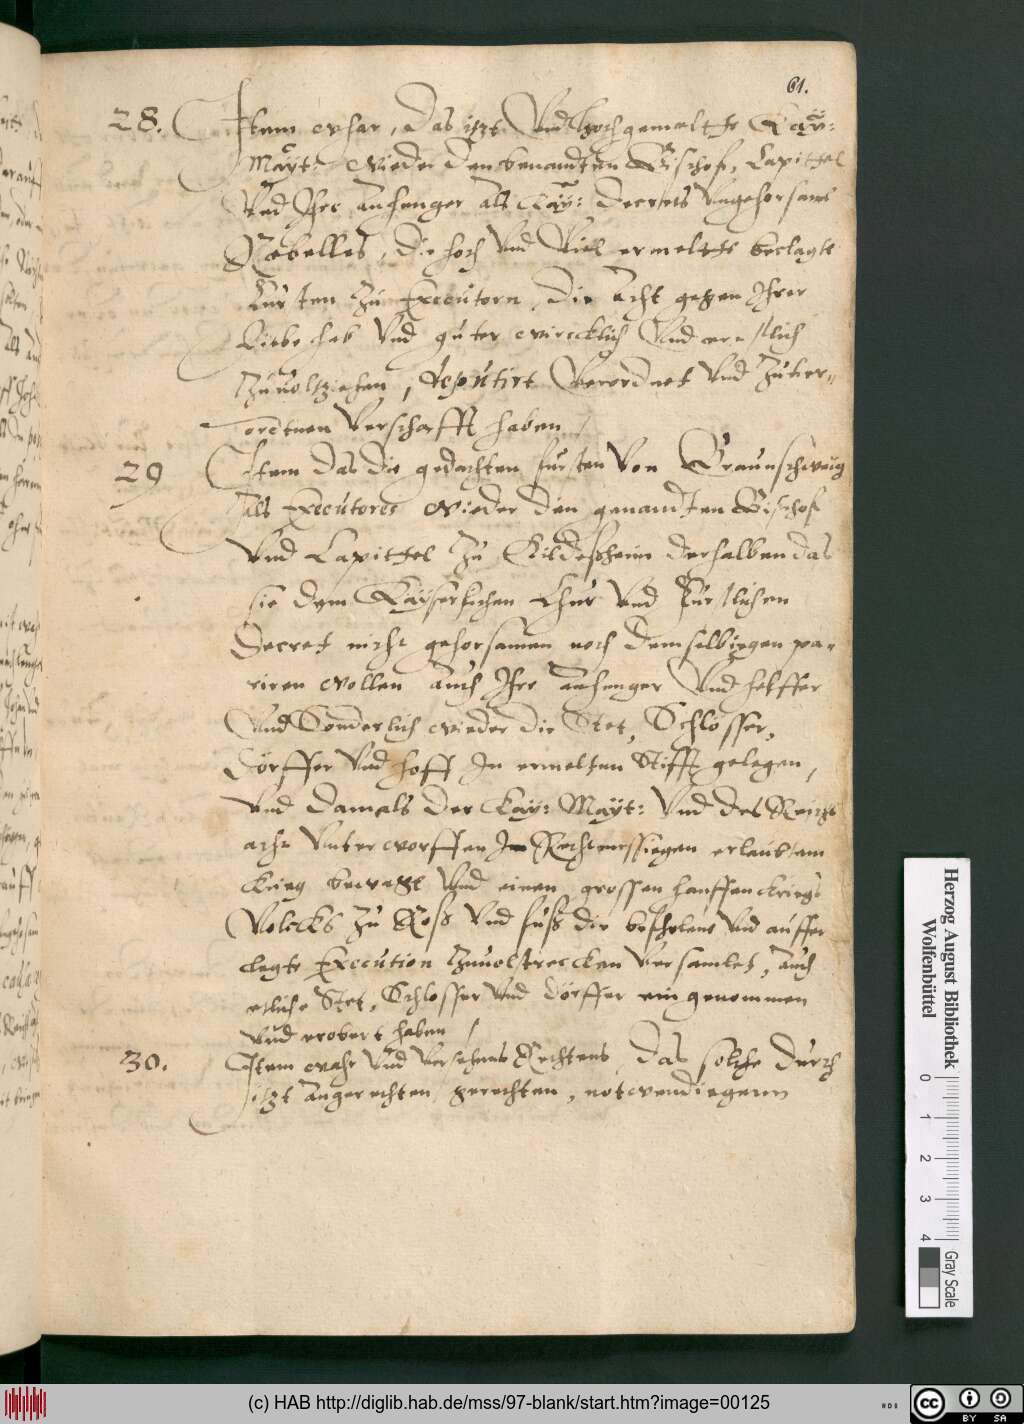 61.
28. Item whar, Das itzt Vnd hochgemeltte Kay:
Mayt: wieder den benandten Bischof, Capittel
Vnd Ihre Anhenger als Kay: Decrets Vngehorsame
Rebelles, die hoch Vnd Viel ermeltte beclagte
Fursten zu Executorn, die Acht gegen Ihrer
Liebe hab Vnd guter wircklich Vnd ernstlich
Zuuoltziehen, deputirt Verordnet Vnd Zuuer=
ordtnen Verschafft haben /
29 Item das die gedachten fursten Von Braunschweig
als Executores wieder den genandten Bischof
Vnd Capittel Zu Hildeßheim derhalben das
sie dem Kayserlichen Chur Vnd Furstlichen
Decret nicht gehorsamen noch demselbigen pa=
riren wollen Auch Ihre Anhenger Vnd helffer
Vnd Sonderlich wieder die Stet, Schlosser,
Dörffer Vnd hoff In ermelten Stifft gelegen,
Vnd damals der Kay: Mayt: Vnd des Reichs
acht Vnterworffen Im Rechtmessiegen erlaubtem
Krieg bewegt Vnd einen grossen hauffen kriegs
Volcks Zu Roß Vnd fuß die befholene Vnd auffer
legte Execution Zuuolstrecken Versamlet, Auch
etliche Stet, Schlosser Vnd dörffer eingenommen
Vnd erobert haben /
30. Item wahr Vnd Versehens Rechtens, Das solche durch
itzt angerechten gerechten, notwendiegenn
Herzog August Bibliothek
Wolfenbüttel
0 1 2 3 4
Gray Scale
(c) HAB http://diglib.hab.de/mss/97-blank/start.htm?image=00125
HAB
cc
BY SA